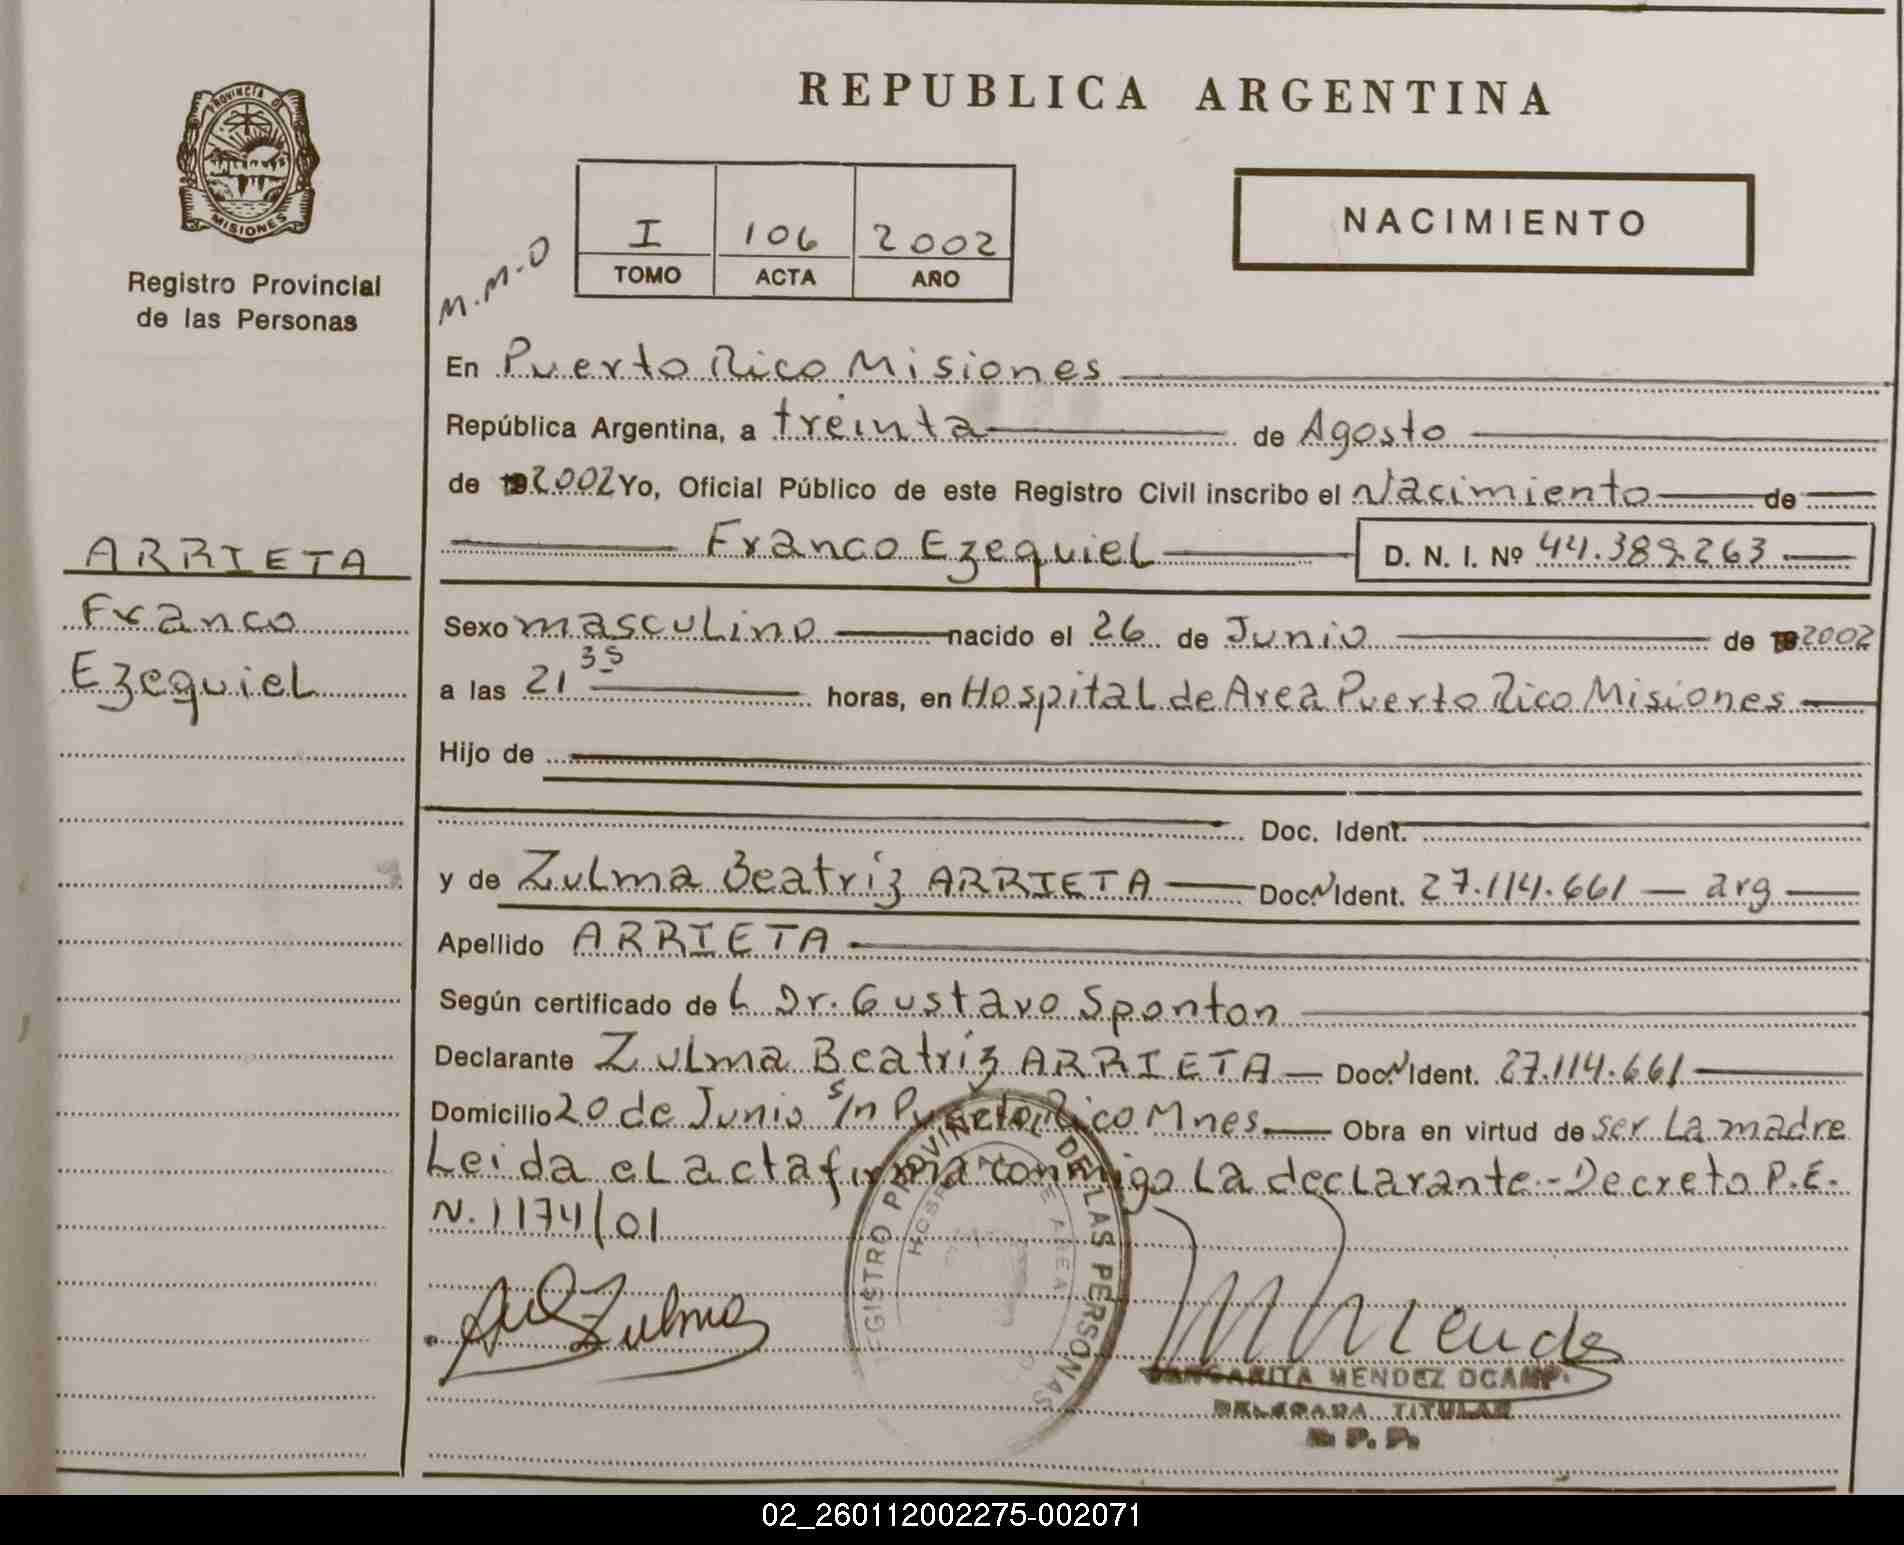 REPUBLICA ARGENTINA
PROVINCIA D
MISIONES
Registro Provincial
de las Personas
M.M.O
I 106 2002
TOMO ACTA AÑO
NACIMIENTO
En Puerto Rico Misiones
República Argentina, a treinta de Agosto
de 192002 Yo, Oficial Público de este Registro Civil inscribo el Nacimiento de
Franco Ezequiel D. N. I. Nº 44.389.263
ARRIETA
Franco
Ezequiel
Sexo masculino nacido el 26 de Junio de 192002
a las 21 35 horas, en Hospital de Area Puerto Rico Misiones
Hijo de
Doc. Ident.
y de Zulma Beatriz ARRIETA Doc. N Ident. 27.114.661 - arg
Apellido ARRIETA
Según certificado de L Dr. Gustavo Sponton
Declarante Zulma Beatriz ARRIETA Doc. N Ident. 27.114.661
Domicilio 20 de Junio s/n Puerto Rico Mnes. Obra en virtud de ser La madre
Leida el acta firma conmigo La declarante.- Decreto P.E.
N. 1174/01
Zulma
REGISTRO PROVINCIAL DE LAS PERSONAS
HOSP DE AREA
MMendez
MARGARITA MENDEZ OCAMP.
DELEGADA TITULAR
R. P. P.
02_260112002275-002071